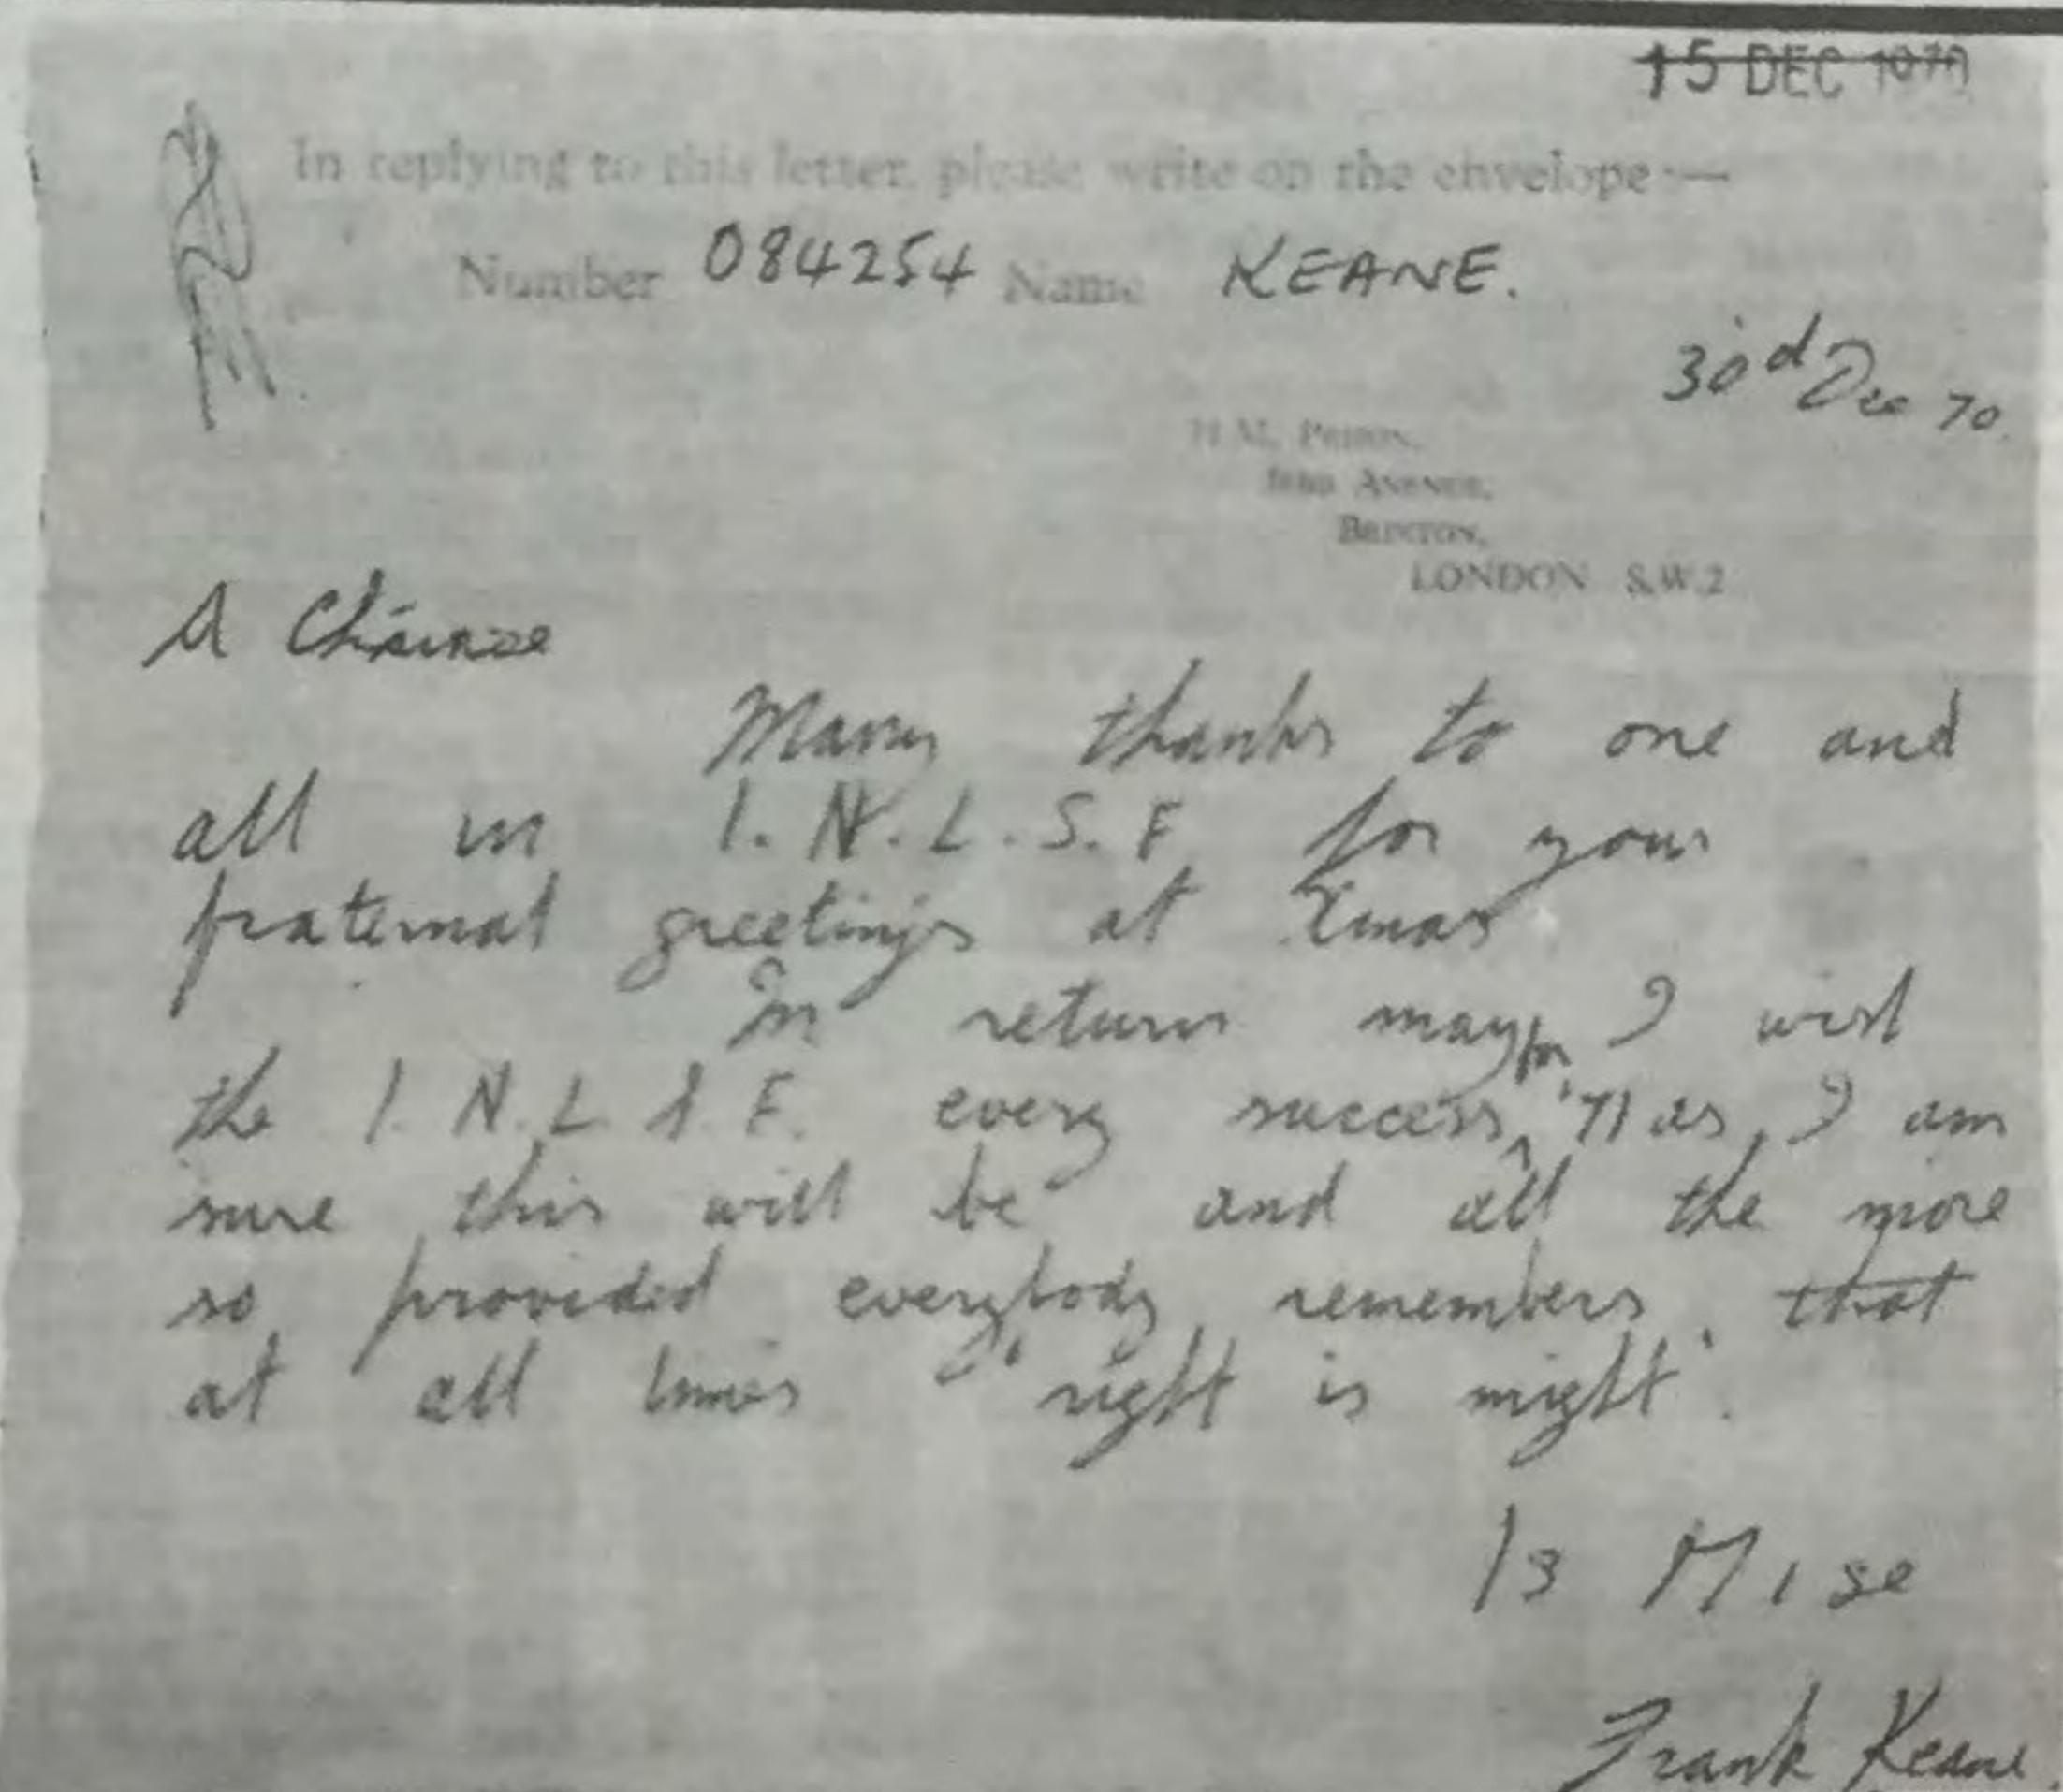 15 DEC 1970
In replying to this letter, please write on the envelope:—
Number 084254 Name KEANE.
30d Dec 70.
H M. Prison,
Jebb Avenue,
Brixton,
LONDON S.W.2
A Cháirde
Many thanks to one and
all in I.N.L.S.F for your
fraternal greetings at Xmas
In return may I wish
the I.N.L.S.F. every success for '71 as I am
sure this will be and all the more
so provided everybody remembers that
at all times "right is might".
Is Mise
Frank Keane